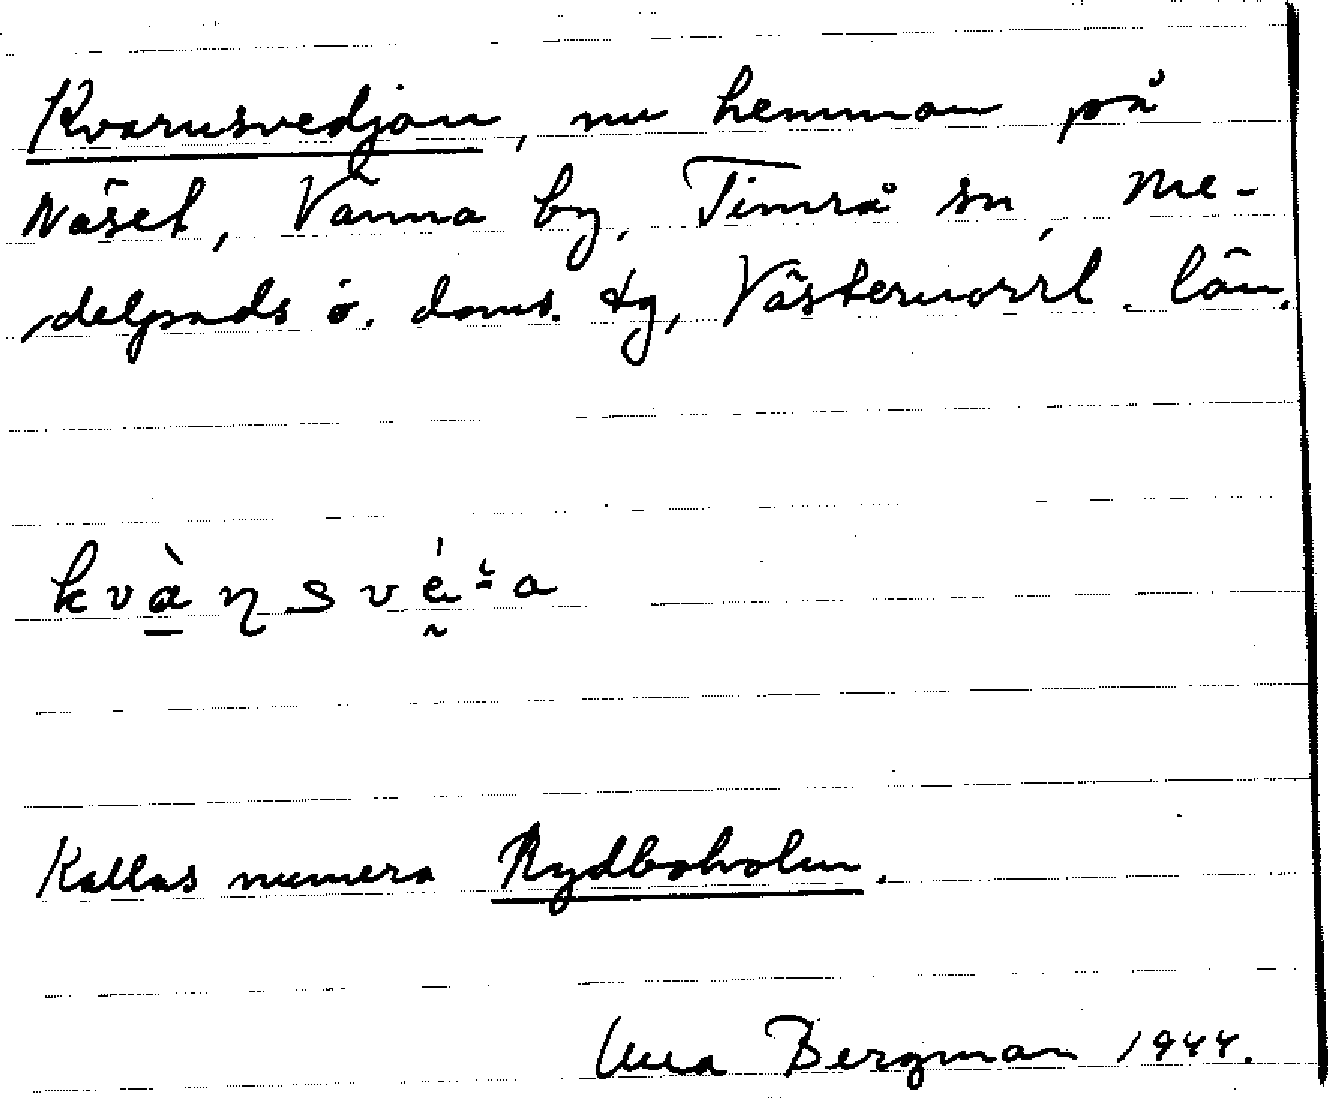 Kvarnsvedjan, nu hemman på
Näset, Vänna by, Timrå sn, Me-
delpads ö. doms. tg, Västernorrl. län.
Kallas numera Rydboholm.
Una Bergman 1944.